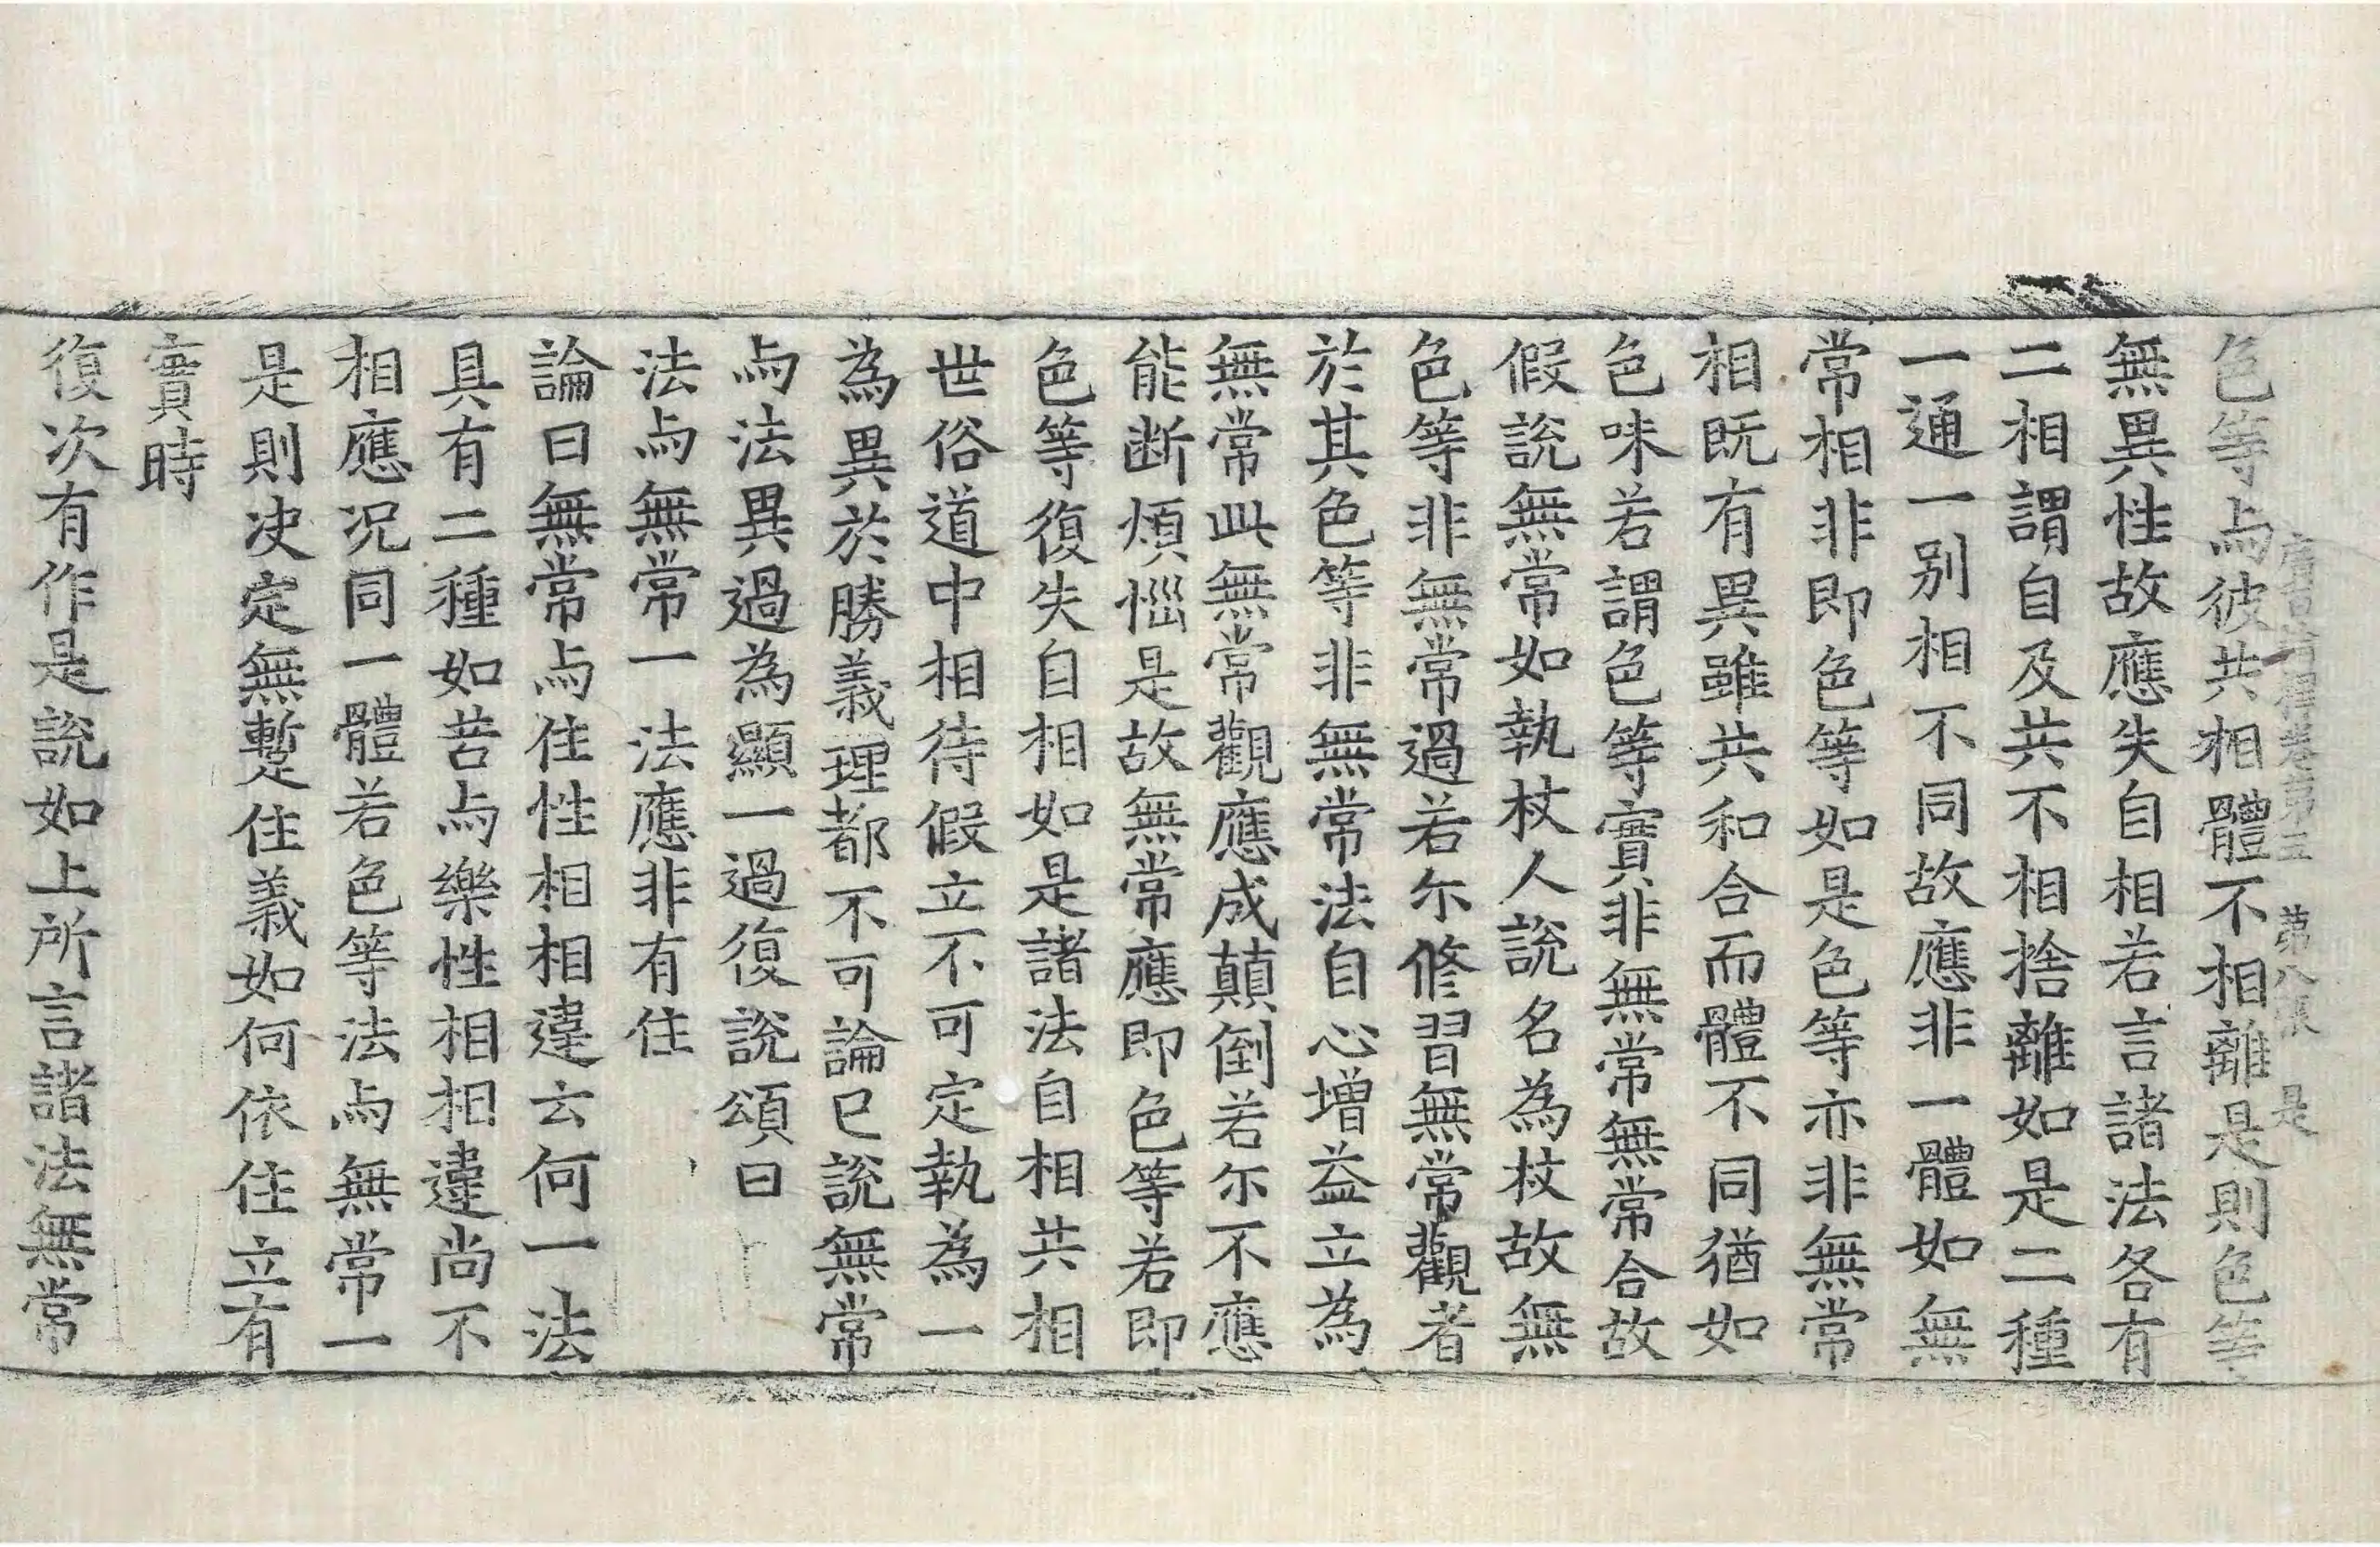 廣百論釋卷第三 第八張 是
色等与彼共相體不相離是則色等
無異性故應失自相若言諸法各有
二相謂自及共不相捨離如是二種
一通一别相不同故應非一體如無
常相非即色等如是色等亦非無常
相既有異雖共和合而體不同猶如
色味若謂色等實非無常無常合故
假說無常如執杖人說名為杖故無
色等非無常過若尓修習無常觀者
於其色等非無常法自心增益立為
無常此無常觀應成顛倒若尓不應
能断煩惱是故無常應即色等若即
色等復失自相如是諸法自相共相
世俗道中相待假立不可定執為一
為異於勝義理都不可論已說無常
与法異過為顯一過復說頌曰
法与無常一 法應非有住
論曰無常与住性相相違云何一法
具有二種如苦与樂性相相違尚不
相應况同一體若色等法与無常一
是則决定無蹔住義如何依住立有
實時
復次有作是說如上所言諸法無常